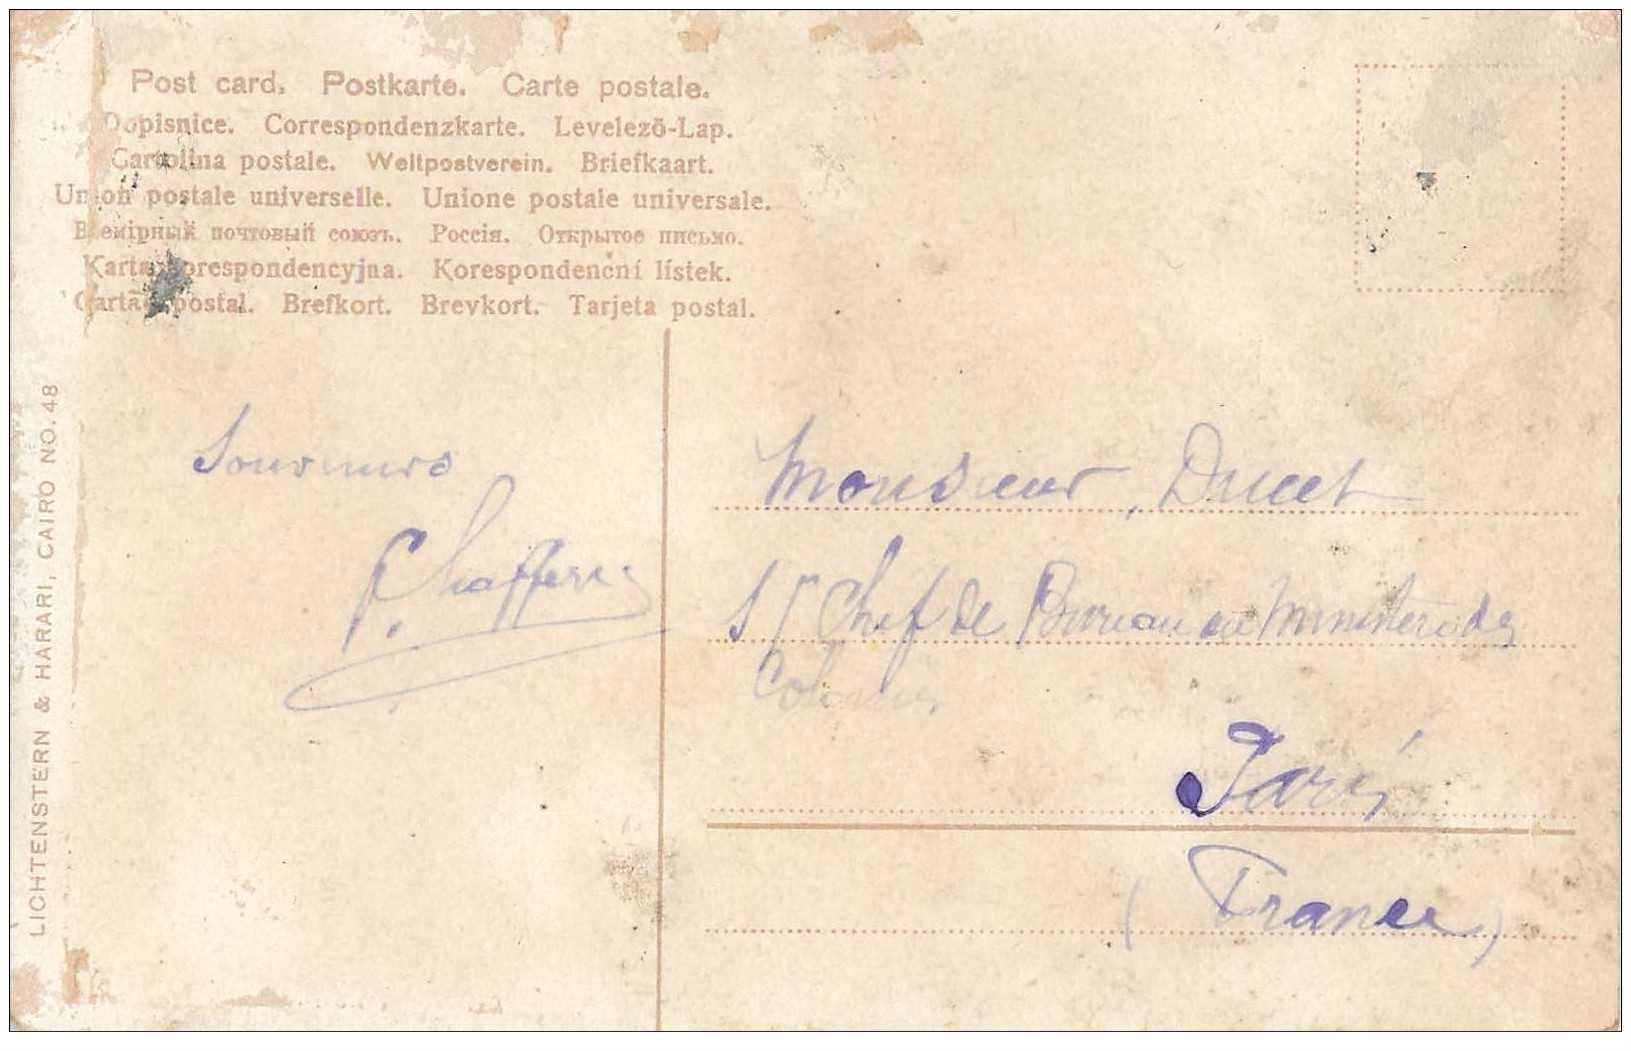 Post card. Postkarte. Carte postale.
Dopisnice. Correspondenzkarte. Levelező-Lap.
Cartolina postale. Weltpostverein. Briefkaart.
Union postale universelle. Unione postale universale.
Всемірный почтовый союзъ. Россія. Открытое письмо.
Karta korespondencyjna. Korespondenční lístek.
Cartão postal. Brefkort. Brevkort. Tarjeta postal.
LICHTENSTERN & HARARI, CAIRO NO. 48
Souvenirs
Monsieur Ducet
S/ Chef de Bureau au Ministère des
Colonies
Paris
(France)